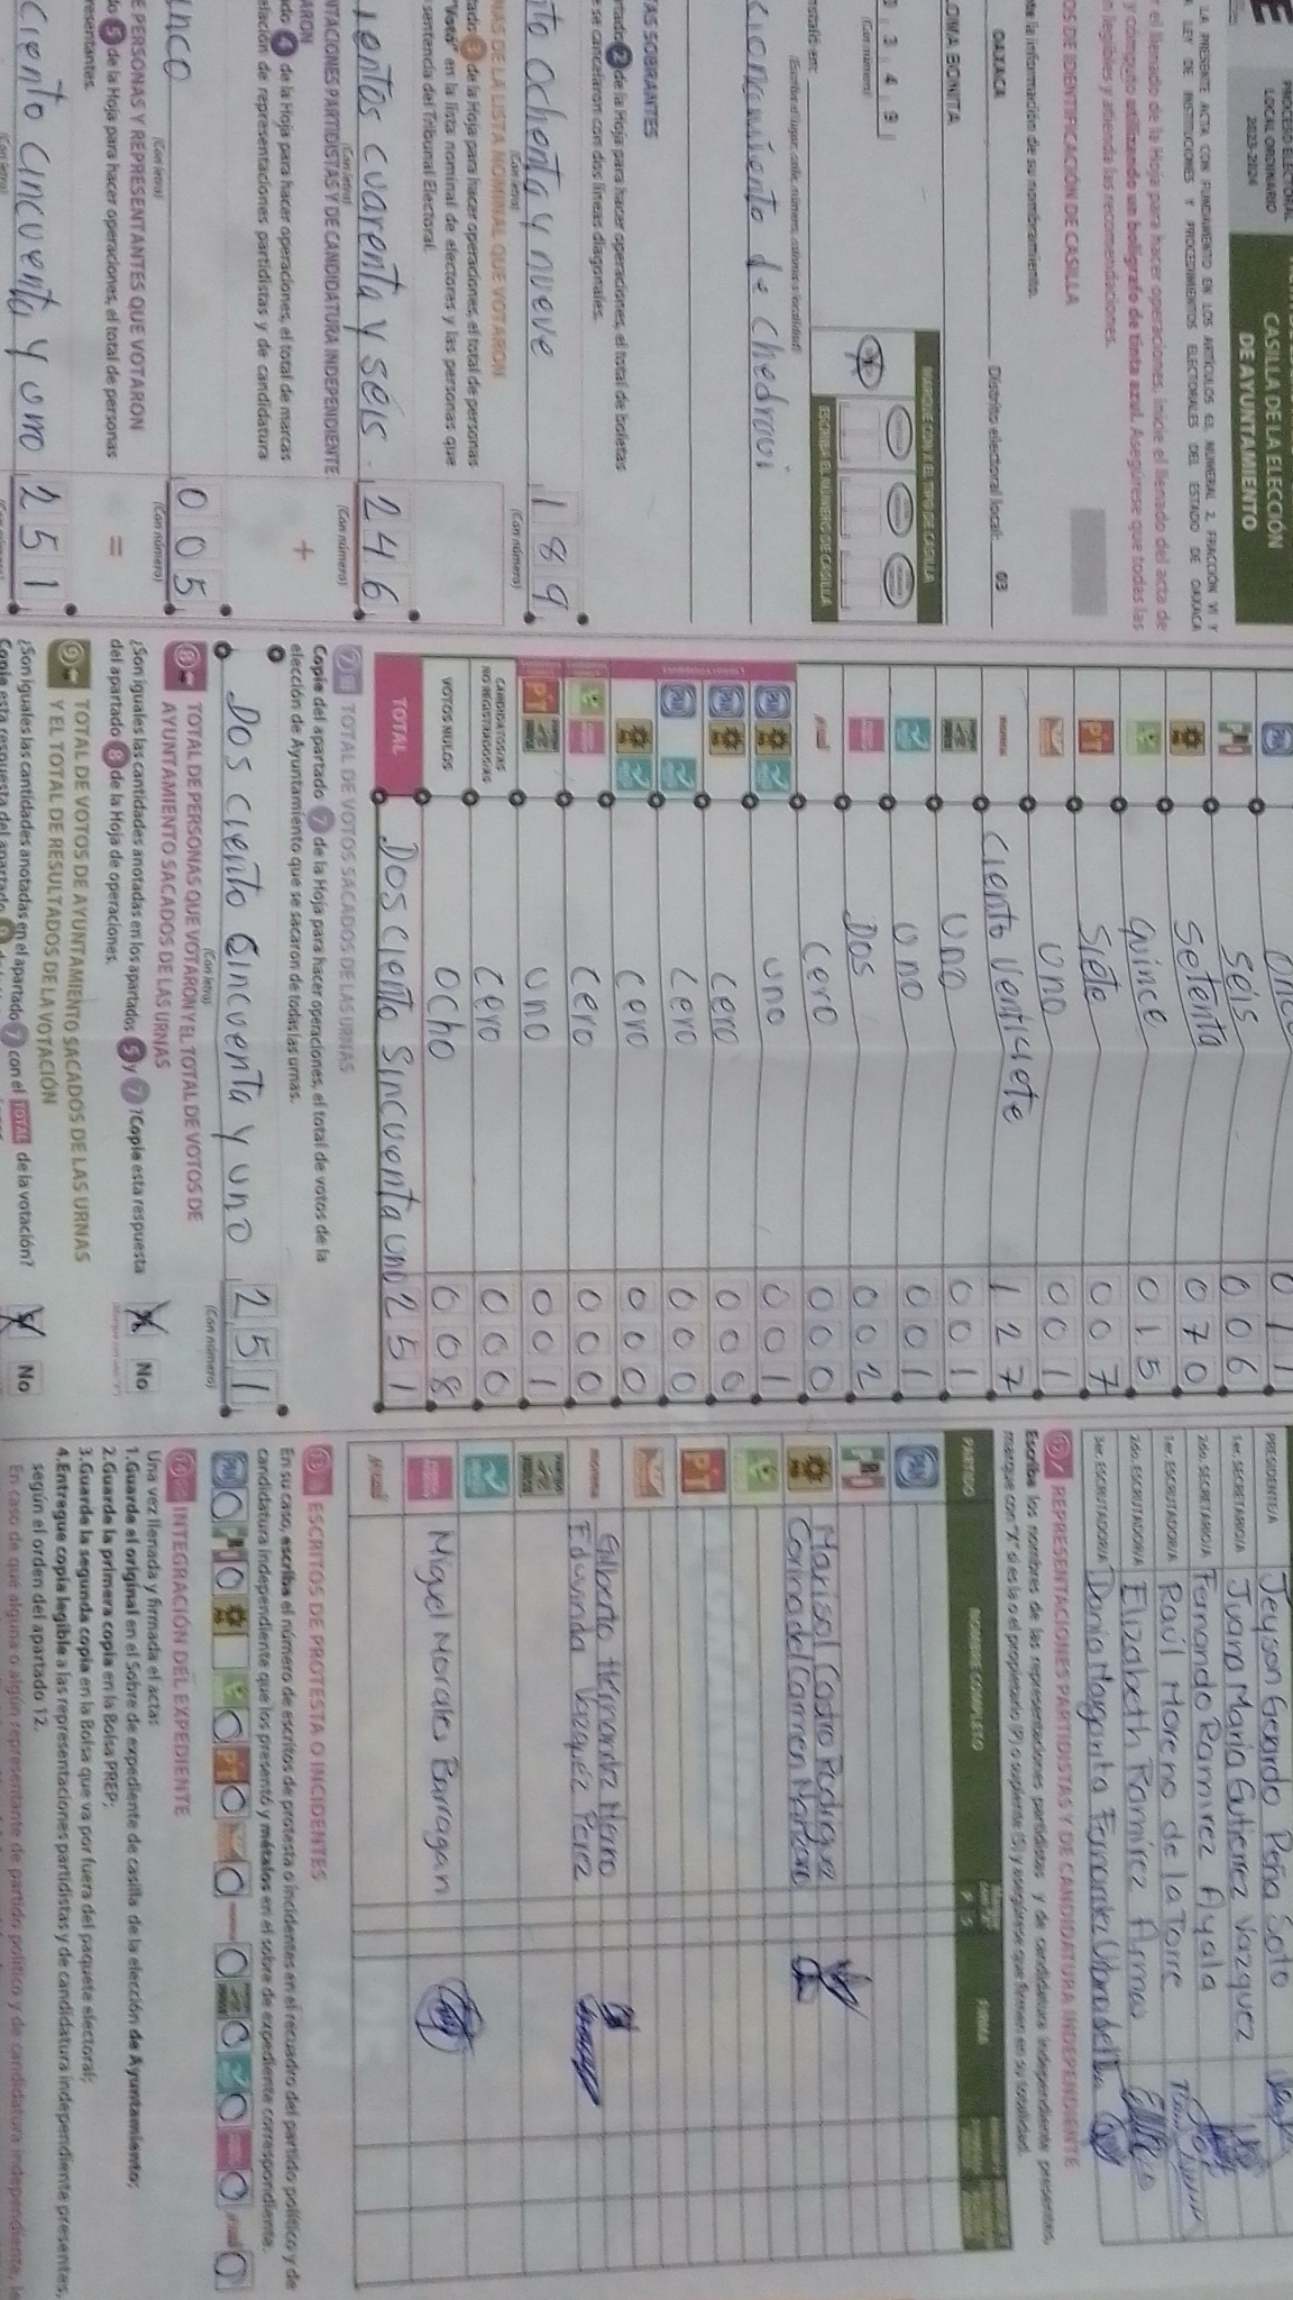 PROCESO ELECTORAL
LOCAL ORDINARIO
2023-2024
CASILLA DE LA ELECCIÓN
DE AYUNTAMIENTO
LA PRESENTE ACTA CON FUNDAMENTO EN LOS ARTÍCULOS 63, NUMERAL 2, FRACCIÓN VI Y
LEY DE INSTITUCIONES Y PROCEDIMIENTOS ELECTORALES DEL ESTADO DE OAXACA
r el llenado de la Hoja para hacer operaciones, inicie el llenado del acta de
y cómputo utilizando un bolígrafo de tinta azul. Asegúrese que todas las
n legibles y atienda las recomendaciones.
OS DE IDENTIFICACIÓN DE CASILLA
la información de su nombramiento.
OAXACA Distrito electoral local: 03
LOMA BONITA
MARQUE CON X EL TIPO DE CASILLA
3 4 9
(Con número)
ESCRIBA EL NÚMERO DE CASILLA
(Escriba el lugar, calle, número, colonia o localidad)
de Chedraui
TAS SOBRANTES
rtado 2 de la Hoja para hacer operaciones, el total de boletas
e se cancelaron con dos líneas diagonales.
to ochenta y nueve 189
(Con letra) (Con número)
NAS DE LA LISTA NOMINAL QUE VOTARON
tado 3 de la Hoja para hacer operaciones, el total de personas
"Votó" en la lista nominal de electores y las personas que
sentencia del Tribunal Electoral.
ientos cuarenta y seis 246
(Con letra) (Con número)
NTACIONES PARTIDISTAS Y DE CANDIDATURA INDEPENDIENTE
ARON
ado 4 de la Hoja para hacer operaciones, el total de marcas
elación de representaciones partidistas y de candidatura
+
inco 005
(Con letra) (Con número)
E PERSONAS Y REPRESENTANTES QUE VOTARON
do 5 de la Hoja para hacer operaciones, el total de personas
resentantes.
=
ciento cincuenta y uno 251
(Con letra)
PAN 011
PRI seis 006
PRD Setenta 070
quince 015
PT siete 007
uno 001
morena ciento ventisiete 127
uno 001
uno 001
Dos 002
cero 000
uno 001
cero 000
cero 000
cero 000
cero 000
PT uno 001
CANDIDATOS/AS
NO REGISTRADOS/AS cero 000
VOTOS NULOS ocho 008
TOTAL Dos ciento Sincuenta uno 251
7 TOTAL DE VOTOS SACADOS DE LAS URNAS
Copie del apartado 7 de la Hoja para hacer operaciones, el total de votos de la
elección de Ayuntamiento que se sacaron de todas las urnas.
Dos ciento cincuenta y uno 251
(Con letra) (Con número)
8 TOTAL DE PERSONAS QUE VOTARON Y EL TOTAL DE VOTOS DE
AYUNTAMIENTO SACADOS DE LAS URNAS
¿Son iguales las cantidades anotadas en los apartados 5 y 7? Copie esta respuesta
del apartado 8 de la Hoja de operaciones.
No
9 TOTAL DE VOTOS DE AYUNTAMIENTO SACADOS DE LAS URNAS
Y EL TOTAL DE RESULTADOS DE LA VOTACIÓN
¿Son iguales las cantidades anotadas en el apartado 7 con el TOTAL de la votación?
No
PRESIDENTE/A Jeyson Gerardo Peña Soto
1er. SECRETARIO/A Juana María Gutierrez Vazquez
2do. SECRETARIO/A Fernando Ramirez Ayala
1er. ESCRUTADOR/A Raúl Moreno de la Torre
2do. ESCRUTADOR/A Elizabeth Ramírez
3er. ESCRUTADOR/A Dania Margarita Fernandez
REPRESENTACIONES PARTIDISTAS Y DE CANDIDATURA INDEPENDIENTE
Escriba los nombres de las representaciones partidistas y de candidatura independiente presentes,
marque con "X" si es la o el propietario (P) o suplente (S) y asegúrese que firmen en su totalidad.
PARTIDO NOMBRE COMPLETO P S FIRMA
PAN
PRI
Marisol Castro Rodriguez
Corina del Carmen
PT
morena Gilberto Hernandez
Eduvinda Vazquéz Perez
Miguel Morales Barragan
ESCRITOS DE PROTESTA O INCIDENTES
En su caso, escriba el número de escritos de protesta o incidentes en el recuadro del partido político y de
candidatura independiente que los presentó y métalos en el sobre de expediente correspondiente.
INTEGRACIÓN DEL EXPEDIENTE
Una vez llenada y firmada el acta:
1.Guarde el original en el Sobre de expediente de casilla de la elección de Ayuntamiento;
2.Guarde la primera copia en la Bolsa PREP;
3.Guarde la segunda copia en la Bolsa que va por fuera del paquete electoral;
4.Entregue copia legible a las representaciones partidistas y de candidatura independiente presentes,
según el orden del apartado 12.
En caso de que alguna o algún representante de partido político y de candidatura independiente,